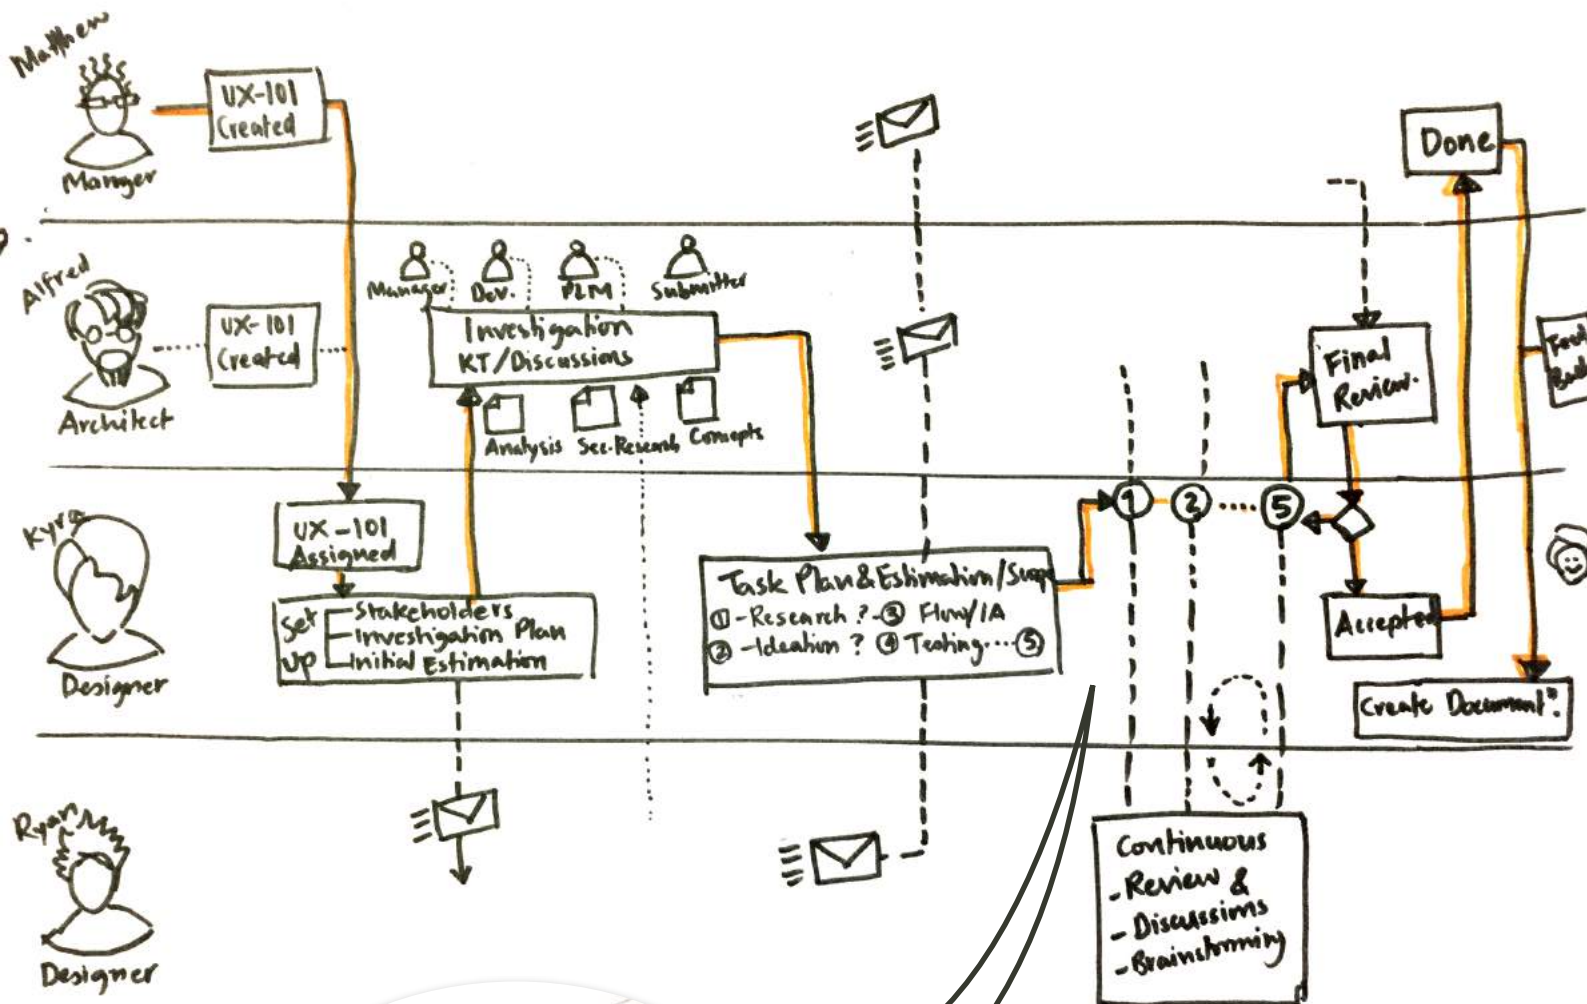 Matthew
Manager
UX-101
Created
Done
Alfred
Architect
UX-101
Created
Manager
Dev.
PLM
Submitter
Investigation
KT/Discussions
Analysis
Sec-Research
Concepts
Final
Review.
Kyra
Designer
UX-101
Assigned
Set
UP
Stakeholders
Investigation Plan
Initial Estimation
Task Plan & Estimation/Scope
① - Research ? - ③ Flow/IA
② - Ideation ? ④ Testing....⑤
1
2
5
Accepted
Create Document
Ryan
Designer
Continuous
- Review &
- Discussions
- Brainstorming